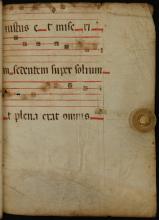 iustus et mise ri
m sedentem super solium
t plena erat omnis